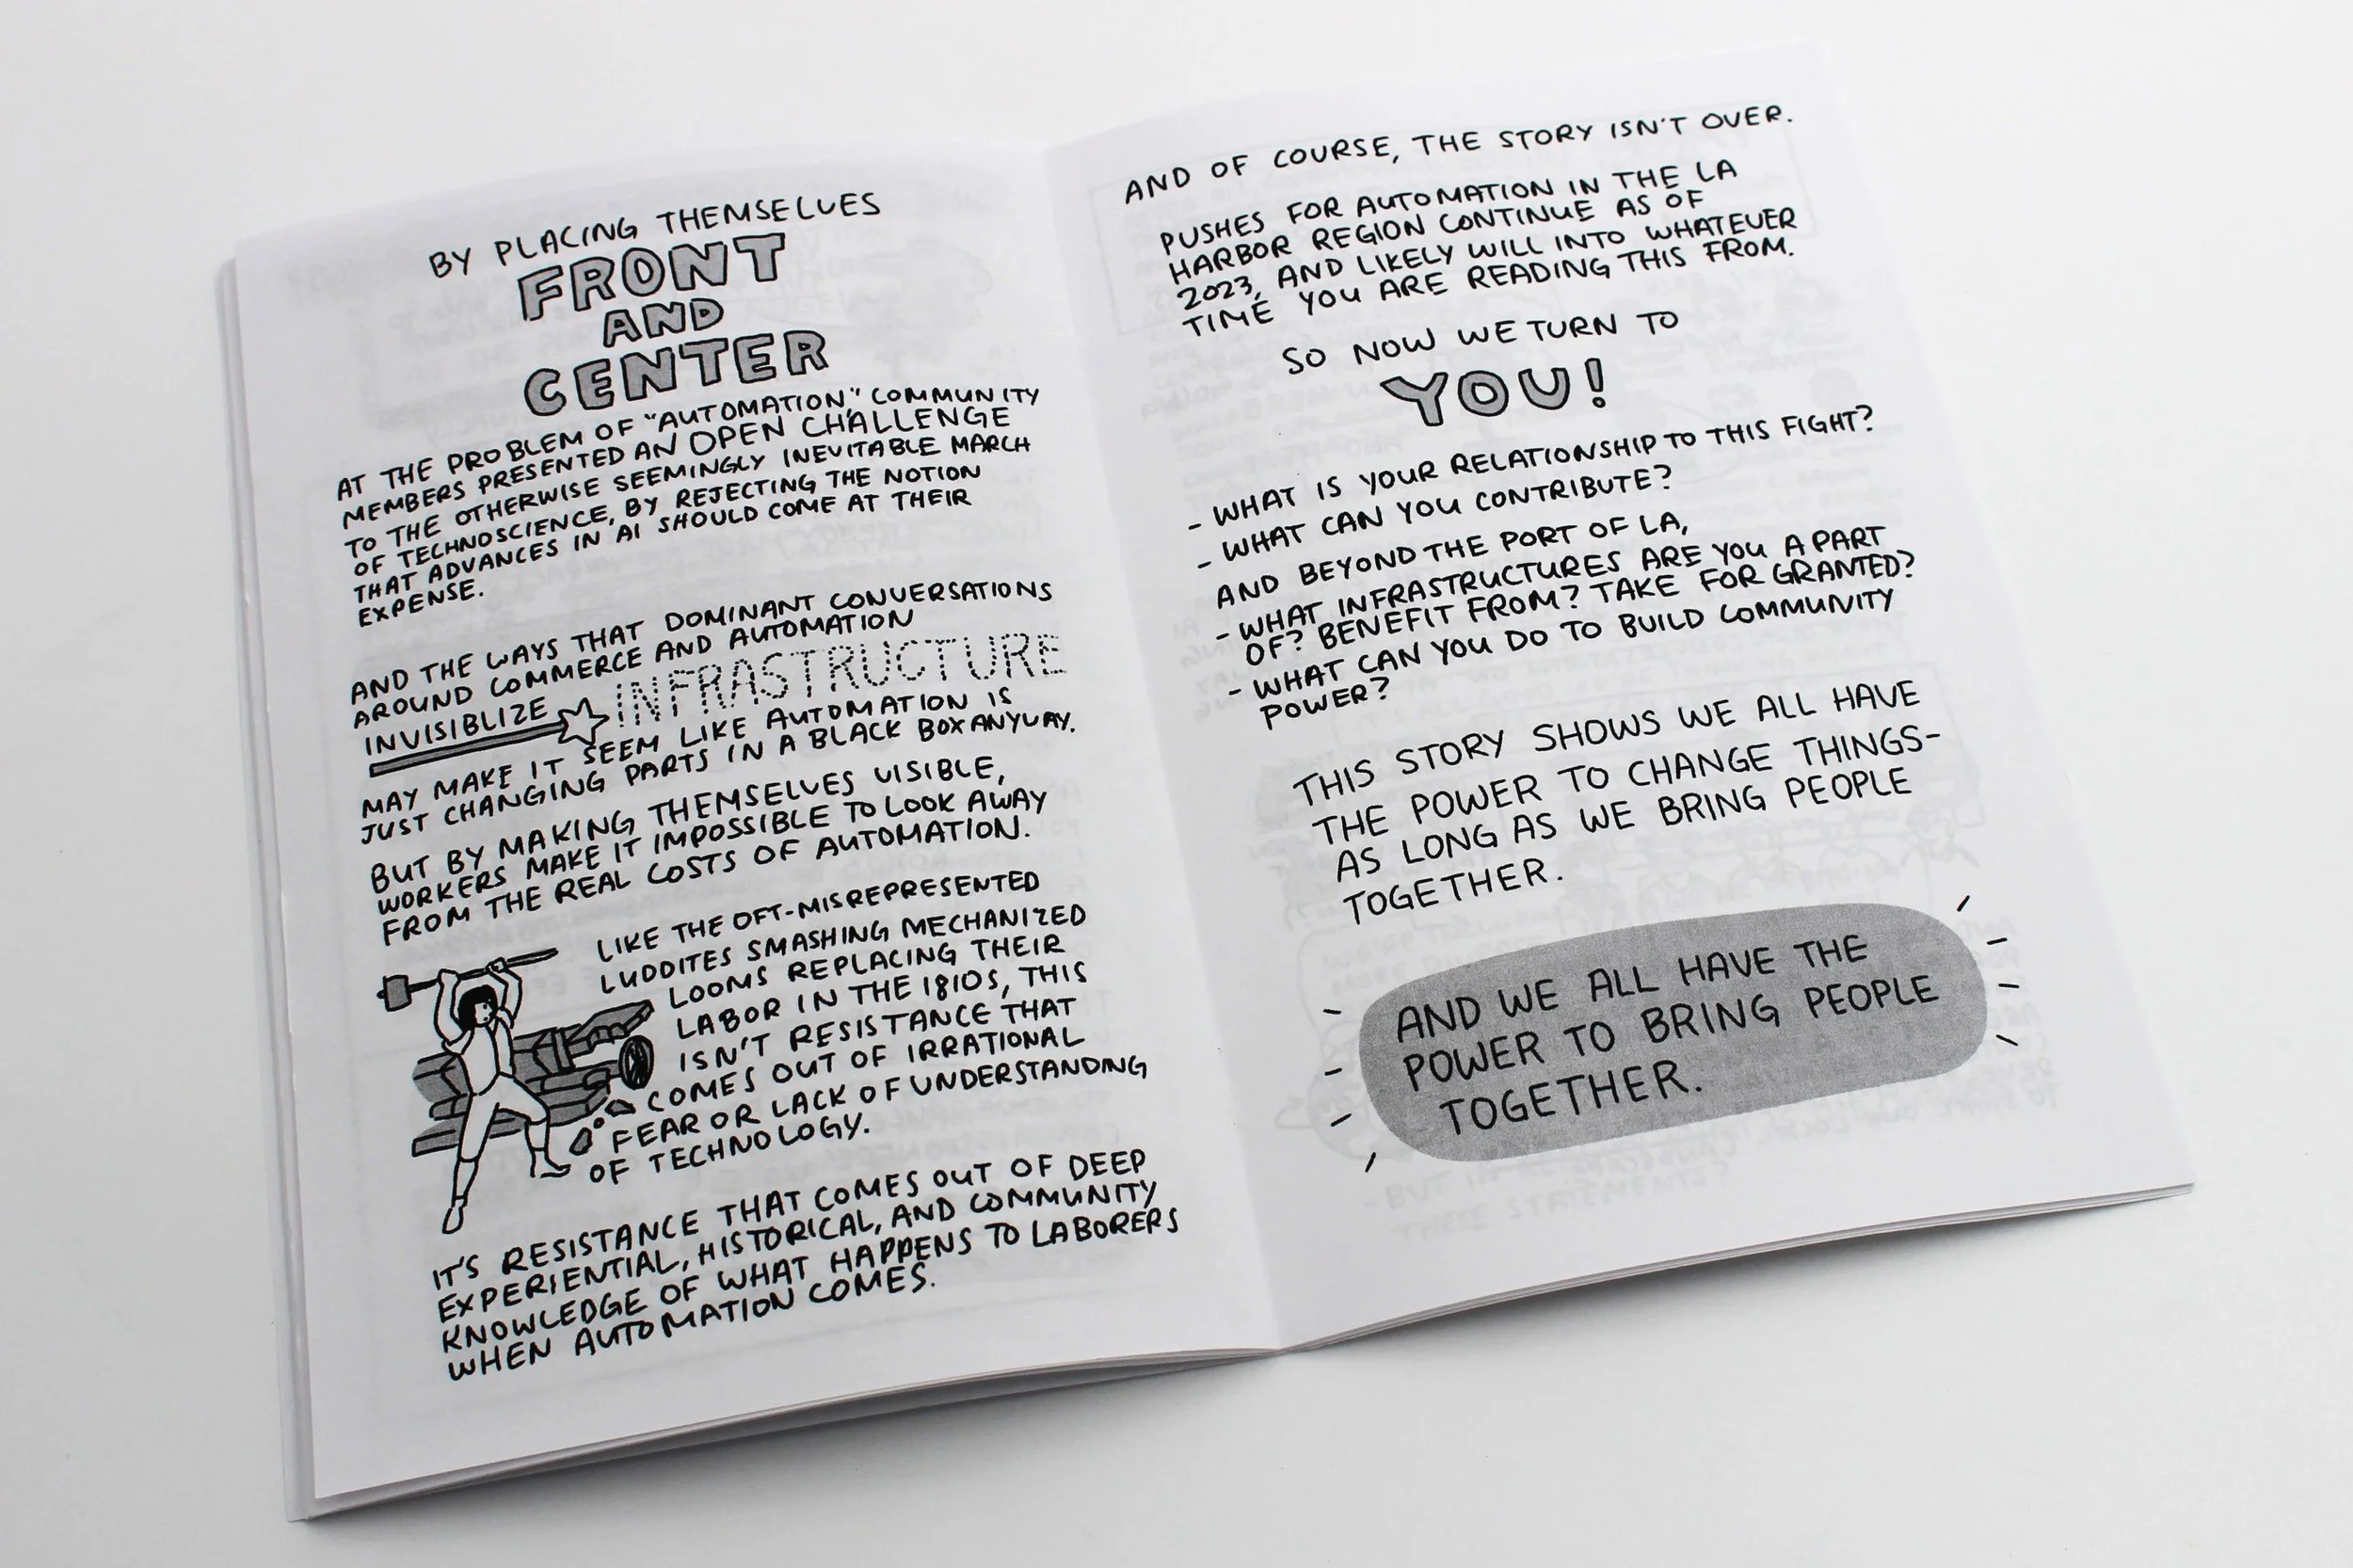 BY PLACING THEMSELVES
FRONT
AND
CENTER
AT THE PROBLEM OF "AUTOMATION," COMMUNITY
MEMBERS PRESENTED AN OPEN CHALLENGE
TO THE OTHERWISE SEEMINGLY INEVITABLE MARCH
OF TECHNOSCIENCE, BY REJECTING THE NOTION
THAT ADVANCES IN AI SHOULD COME AT THEIR
EXPENSE.
AND THE WAYS THAT DOMINANT CONVERSATIONS
AROUND COMMERCE AND AUTOMATION
INVISIBLIZE INFRASTRUCTURE
MAY MAKE IT SEEM LIKE AUTOMATION IS
JUST CHANGING PARTS IN A BLACK BOX ANYWAY.
BUT BY MAKING THEMSELVES VISIBLE,
WORKERS MAKE IT IMPOSSIBLE TO LOOK AWAY
FROM THE REAL COSTS OF AUTOMATION.
LIKE THE OFT-MISREPRESENTED
LUDDITES SMASHING MECHANIZED
LOOMS REPLACING THEIR
LABOR IN THE 1810S, THIS
ISN'T RESISTANCE THAT
COMES OUT OF IRRATIONAL
FEAR OR LACK OF UNDERSTANDING
OF TECHNOLOGY.
IT'S RESISTANCE THAT COMES OUT OF DEEP
EXPERIENTIAL, HISTORICAL, AND COMMUNITY
KNOWLEDGE OF WHAT HAPPENS TO LABORERS
WHEN AUTOMATION COMES.
AND OF COURSE, THE STORY ISN'T OVER.
PUSHES FOR AUTOMATION IN THE LA
HARBOR REGION CONTINUE AS OF
2023, AND LIKELY WILL INTO WHATEVER
TIME YOU ARE READING THIS FROM.
SO NOW WE TURN TO
YOU!
- WHAT IS YOUR RELATIONSHIP TO THIS FIGHT?
- WHAT CAN YOU CONTRIBUTE?
AND BEYOND THE PORT OF LA,
- WHAT INFRASTRUCTURES ARE YOU A PART
OF? BENEFIT FROM? TAKE FOR GRANTED?
- WHAT CAN YOU DO TO BUILD COMMUNITY
POWER?
THIS STORY SHOWS WE ALL HAVE
THE POWER TO CHANGE THINGS-
AS LONG AS WE BRING PEOPLE
TOGETHER.
AND WE ALL HAVE THE
POWER TO BRING PEOPLE
TOGETHER.